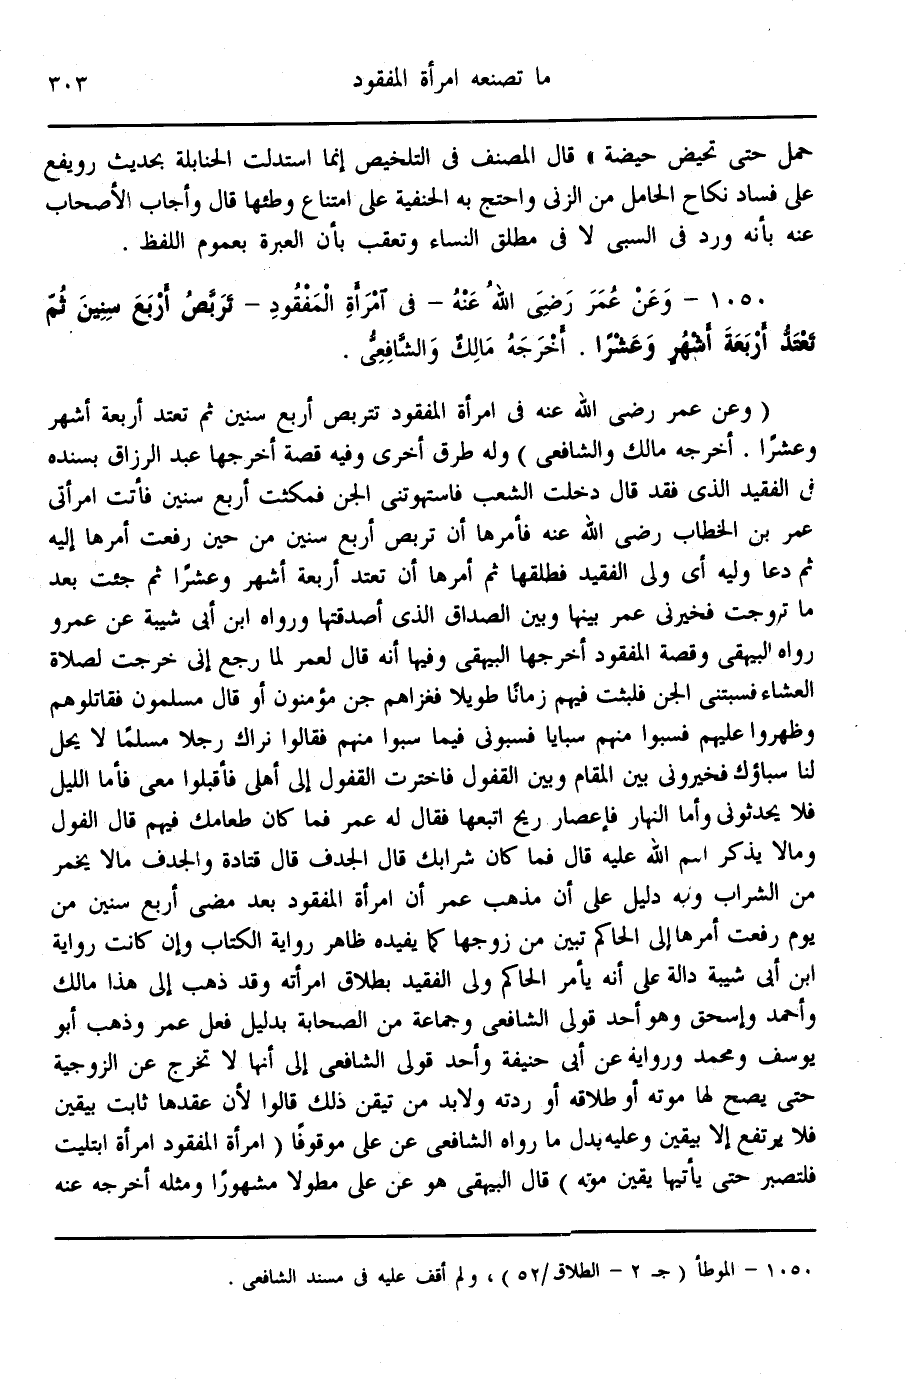 ما تصنعه امرأة المفقود
٣٠٣
حمل حتى تحيض حيضة » قال المصنف فى التلخيص إنما استدلت الحنابلة بحديث رويفع
على فساد نكاح الحامل من الزنى واحتج به الحنفية على امتناع وطئها قال وأجاب الأصحاب
عنه بأنه ورد فى السبى لا فى مطلق النساء وتعقب بأن العبرة بعموم اللفظ .
١٠٥٠ – وَعَنْ عُمَرَ رَضِىَ اللهُ عَنْهُ – فى آمْرَأَةِ الْمَفْقُودِ – تَرَبَّصُ أَرْبَعَ سِنِينَ ثُمَّ
تَعْتَدُّ أَرْبَعَةَ أَشْهُرٍ وَعَشْرًا . أَخْرَجَهُ مَالِكٌ وَالشَّافِعِىُّ .
( وعن عمر رضى الله عنه فى امرأة المفقود تتربص أربع سنين ثم تعتد أربعة أشهر
وعشرًا . أخرجه مالك والشافعى ) وله طرق أخرى وفيه قصة أخرجها عبد الرزاق بسنده
فى الفقيد الذى فقد قال دخلت الشعب فاستهوتنى الجن فمكثت أربع سنين فأتت امرأتى
عمر بن الخطاب رضى الله عنه فأمرها أن تربص أربع سنين من حين رفعت أمرها إليه
ثم دعا وليه أى ولى الفقيد فطلقها ثم أمرها أن تعتد أربعة أشهر وعشرًا ثم جئت بعد
ما تزوجت فخيرنى عمر بينها وبين الصداق الذى أصدقتها ورواه ابن أبى شيبة عن عمرو
رواه البيهقى وقصة المفقود أخرجها البيهقى وفيها أنه قال لعمر لما رجع إنى خرجت لصلاة
العشاء فسبتنى الجن فلبثت فيهم زمانًا طويلا فغزاهم جن مؤمنون أو قال مسلمون فقاتلوهم
وظهروا عليهم فسبوا منهم سبايا فسبونى فيما سبوا منهم فقالوا نراك رجلا مسلمًا لا يحل
لنا سباؤك فخيرونى بين المقام وبين القفول فاخترت القفول إلى أهلى فأقبلوا معى فأما الليل
فلا يحدثونى وأما النهار فإعصار ريح اتبعها فقال له عمر فما كان طعامك فيهم قال الفول
ومالا يذكر اسم الله عليه قال فما كان شرابك قال الجدف قال قتادة والجدف مالا يخمر
من الشراب وفيه دليل على أن مذهب عمر أن امرأة المفقود بعد مضى أربع سنين من
يوم رفعت أمرها إلى الحاكم تبين من زوجها كما يفيده ظاهر رواية الكتاب وإن كانت رواية
ابن أبى شيبة دالة على أنه يأمر الحاكم ولى الفقيد بطلاق امرأته وقد ذهب إلى هذا مالك
وأحمد وإسحق وهو أحد قولى الشافعى وجماعة من الصحابة بدليل فعل عمر وذهب أبو
يوسف ومحمد ورواية عن أبى حنيفة وأحد قولى الشافعى إلى أنها لا تخرج عن الزوجية
حتى يصح لها موته أو طلاقه أو ردته ولابد من تيقن ذلك قالوا لأن عقدها ثابت بيقين
فلا يرتفع إلا بيقين وعليه يدل ما رواه الشافعى عن على موقوفًا ( امرأة المفقود امرأة ابتليت
فلتصبر حتى يأتيها يقين موته ) قال البيهقى هو عن على مطولا مشهورًا ومثله أخرجه عنه
١٠٥٠ – الموطأ ( جـ ٢ – الطلاق/٥٢ ) ، ولم أقف عليه فى مسند الشافعى .